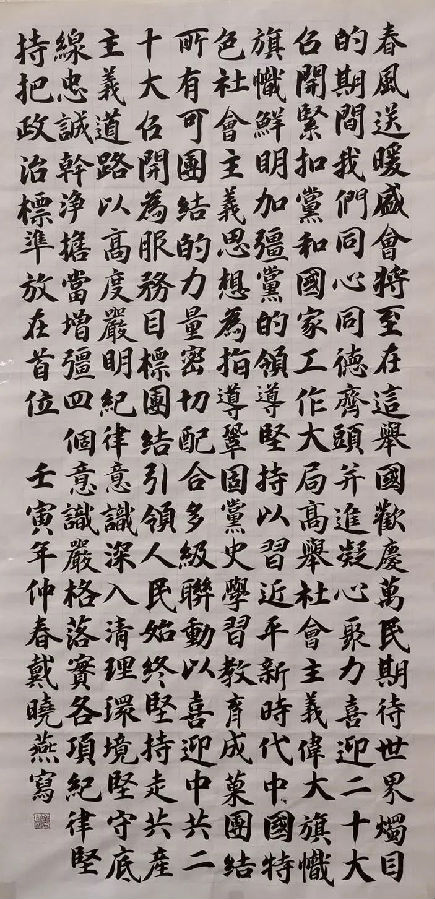 春風送暖盛會將至在這舉國歡慶萬民期待世界燭目
的期間我們同心同德齊頭并進凝心聚力喜迎二十大
召開緊扣黨和國家工作大局高舉社會主義偉大旗幟
旗幟鮮明加彊黨的領導堅持以習近平新時代中國特
色社會主義思想為指導鞏固黨史學習教育成菓團結
所有可團結的力量密切配合多級聯動以喜迎中共二
十大召開為服務目標團結引領人民始終堅持走共產
主義道路以高度嚴明紀律意識深入清理環境堅守底
線忠誠幹淨擔當增彊四個意識嚴格落實各項紀律堅
持把政治標準放在首位 壬寅年仲春戴曉燕寫